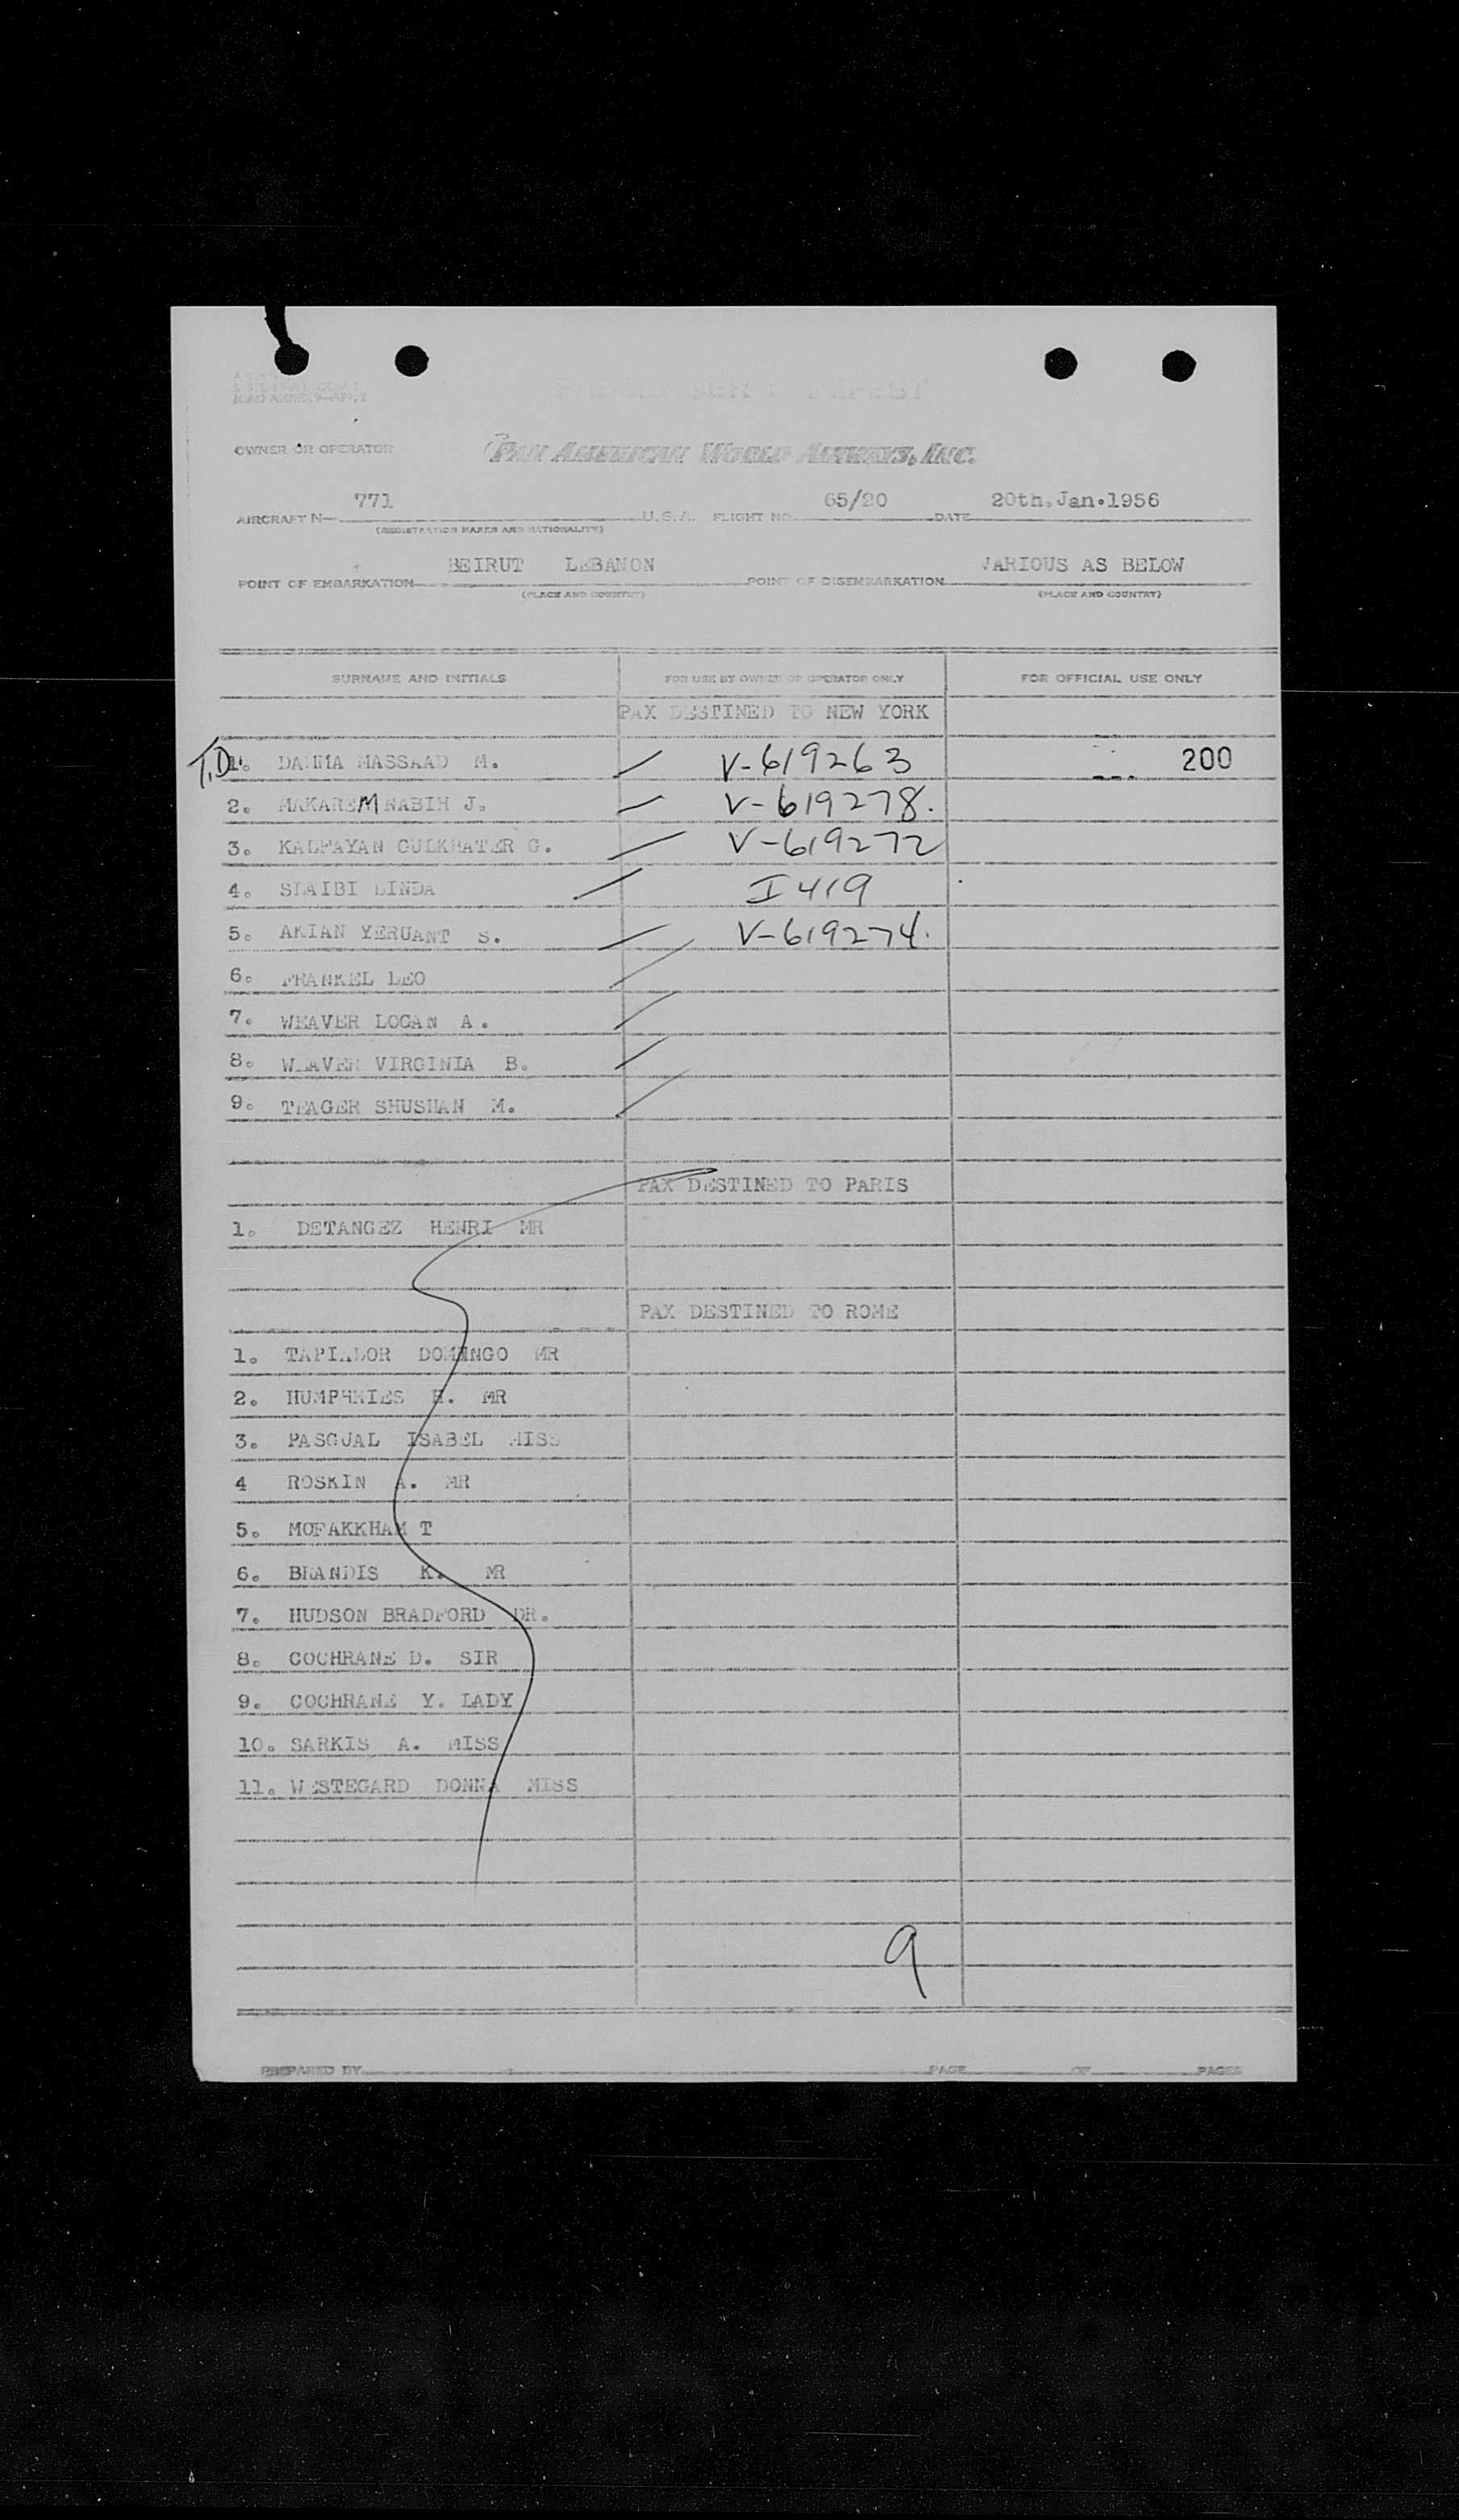 ICAO ANNEX 9—APP. 2
PASSENGER MANIFEST
OWNER OR OPERATOR PAN AMERICAN WORLD AIRWAYS, INC.
AIRCRAFT N— 771 U.S.A. FLIGHT NO. 65/20 DATE 20th.Jan.1956
(REGISTRATION MARKS AND NATIONALITY)
POINT OF EMBARKATION BEIRUT LEBANON POINT OF DISEMBARKATION VARIOUS AS BELOW
(PLACE AND COUNTRY) (PLACE AND COUNTRY)
SURNAME AND INITIALS FOR USE BY OWNER OR OPERATOR ONLY FOR OFFICIAL USE ONLY
PAX DESTINED TO NEW YORK
T.D 1. MASSAAD M. V-619263 200
2. MAKAREM NABIH J. V-619278.
3. KALFAYAN G. V-619272
4. SIAIBI LINDA I 419
5. AKIAN YERUANT S. V-619274.
6. FRANKEL LEO
7. WEAVER LOGAN A.
8. WEAVER VIRGINIA B.
9. TEAGER SHUSHAN M.
PAX DESTINED TO PARIS
1. DETANGEZ HENRI MR
PAX DESTINED TO ROME
1. DOMINGO MR
2. HUMPHRIES MR
3. PASQUAL ISABEL MISS
4 ROSKIN A. MR
5. MOFAKKHAM T
6. BRANDIS K. MR
7. HUDSON BRADFORD DR.
8. COCHRANE D. SIR
9. COCHRANE Y. LADY
10. SARKIS A. MISS
11. WESTEGARD DONNA MISS
9
PREPARED BY PAGE OF PAGES